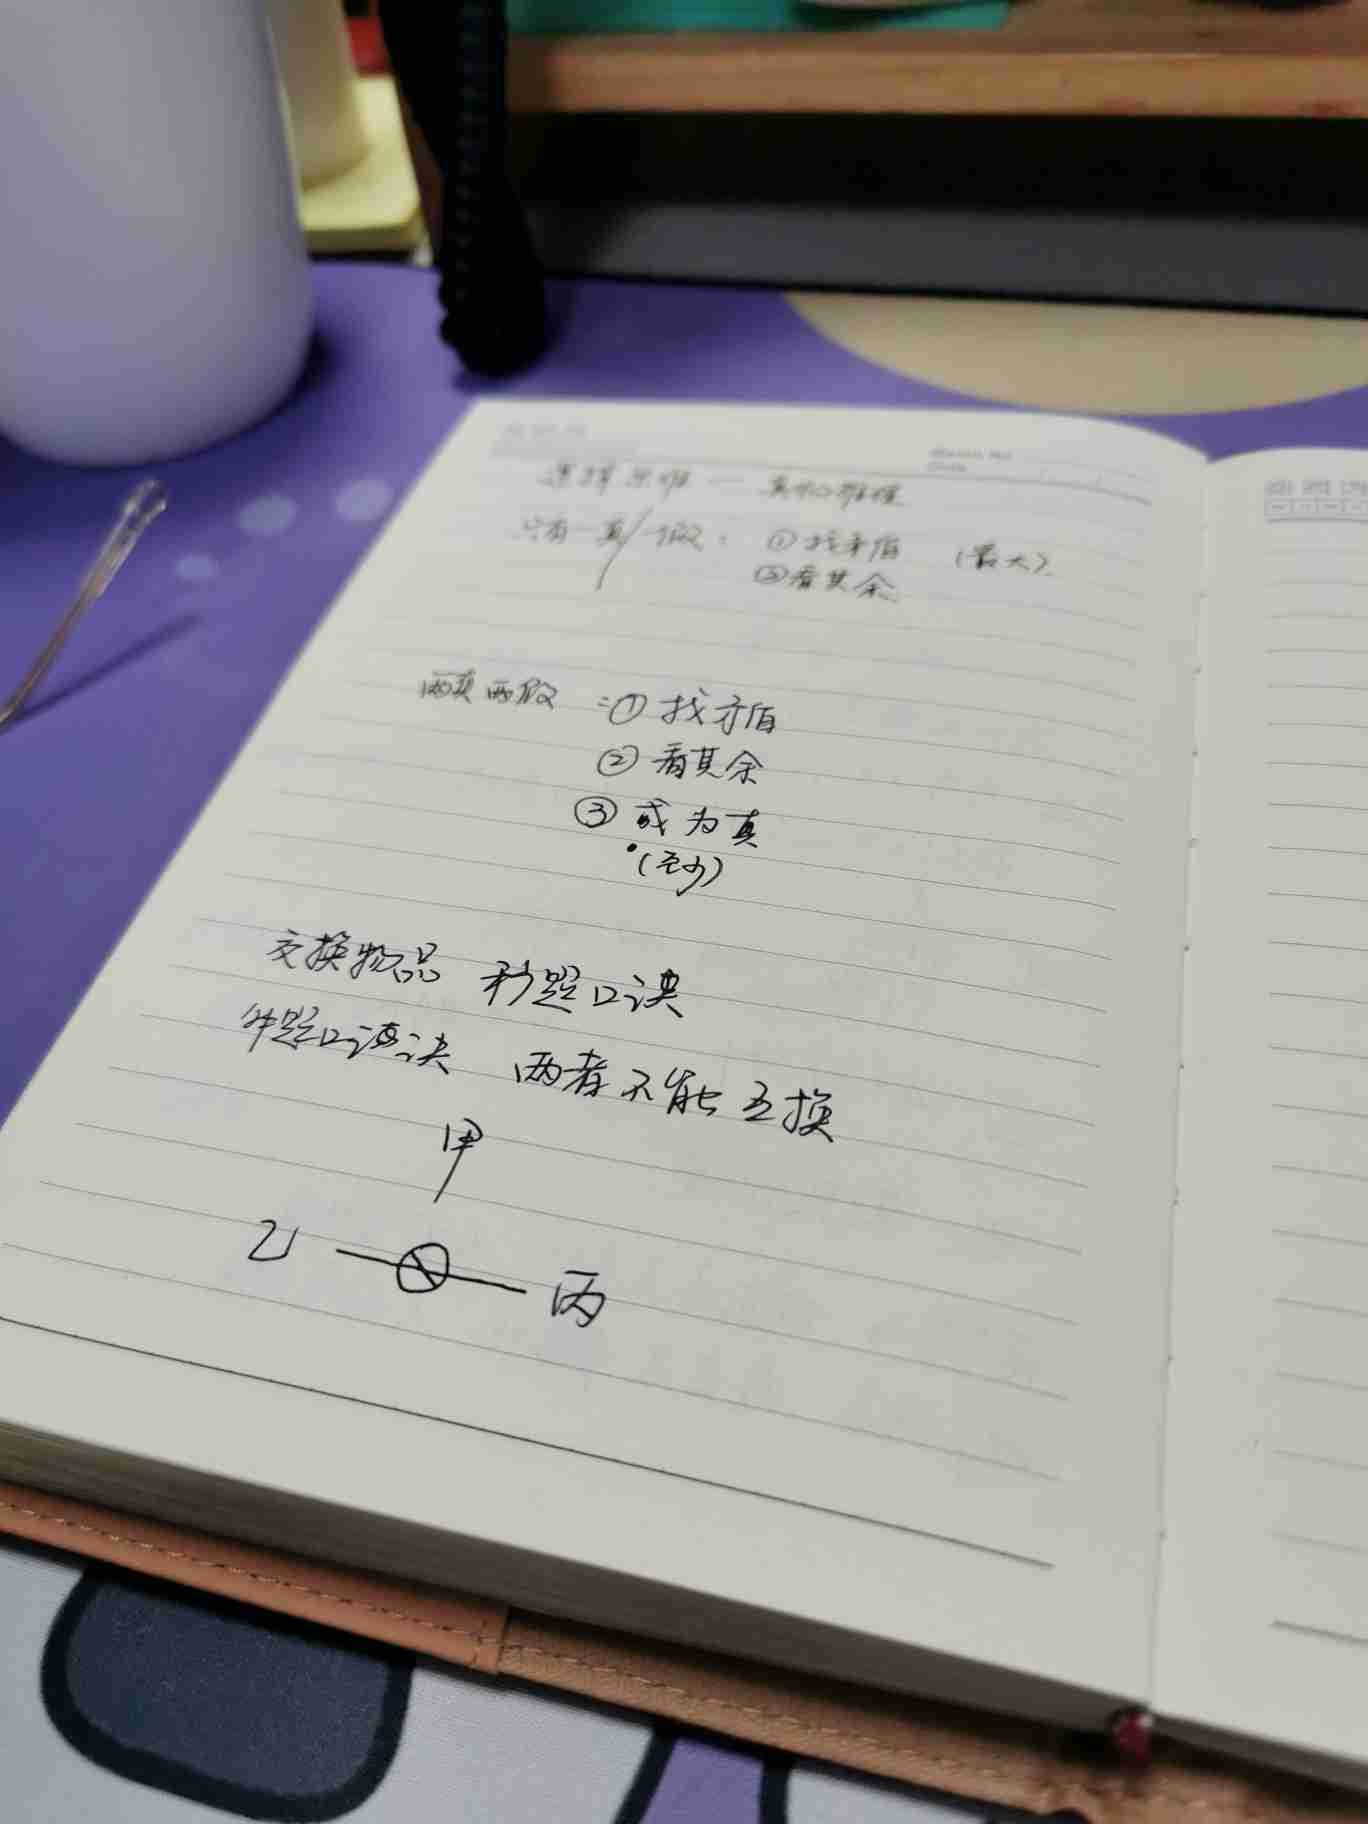 逻辑思维一真假推理
只有一真/一假：①找矛盾 (最大)
②看其余
两真两假：①找矛盾
②看其余
③或为真
(至少)
交换物品 秒题口诀
两者不能互换
甲
乙 丙